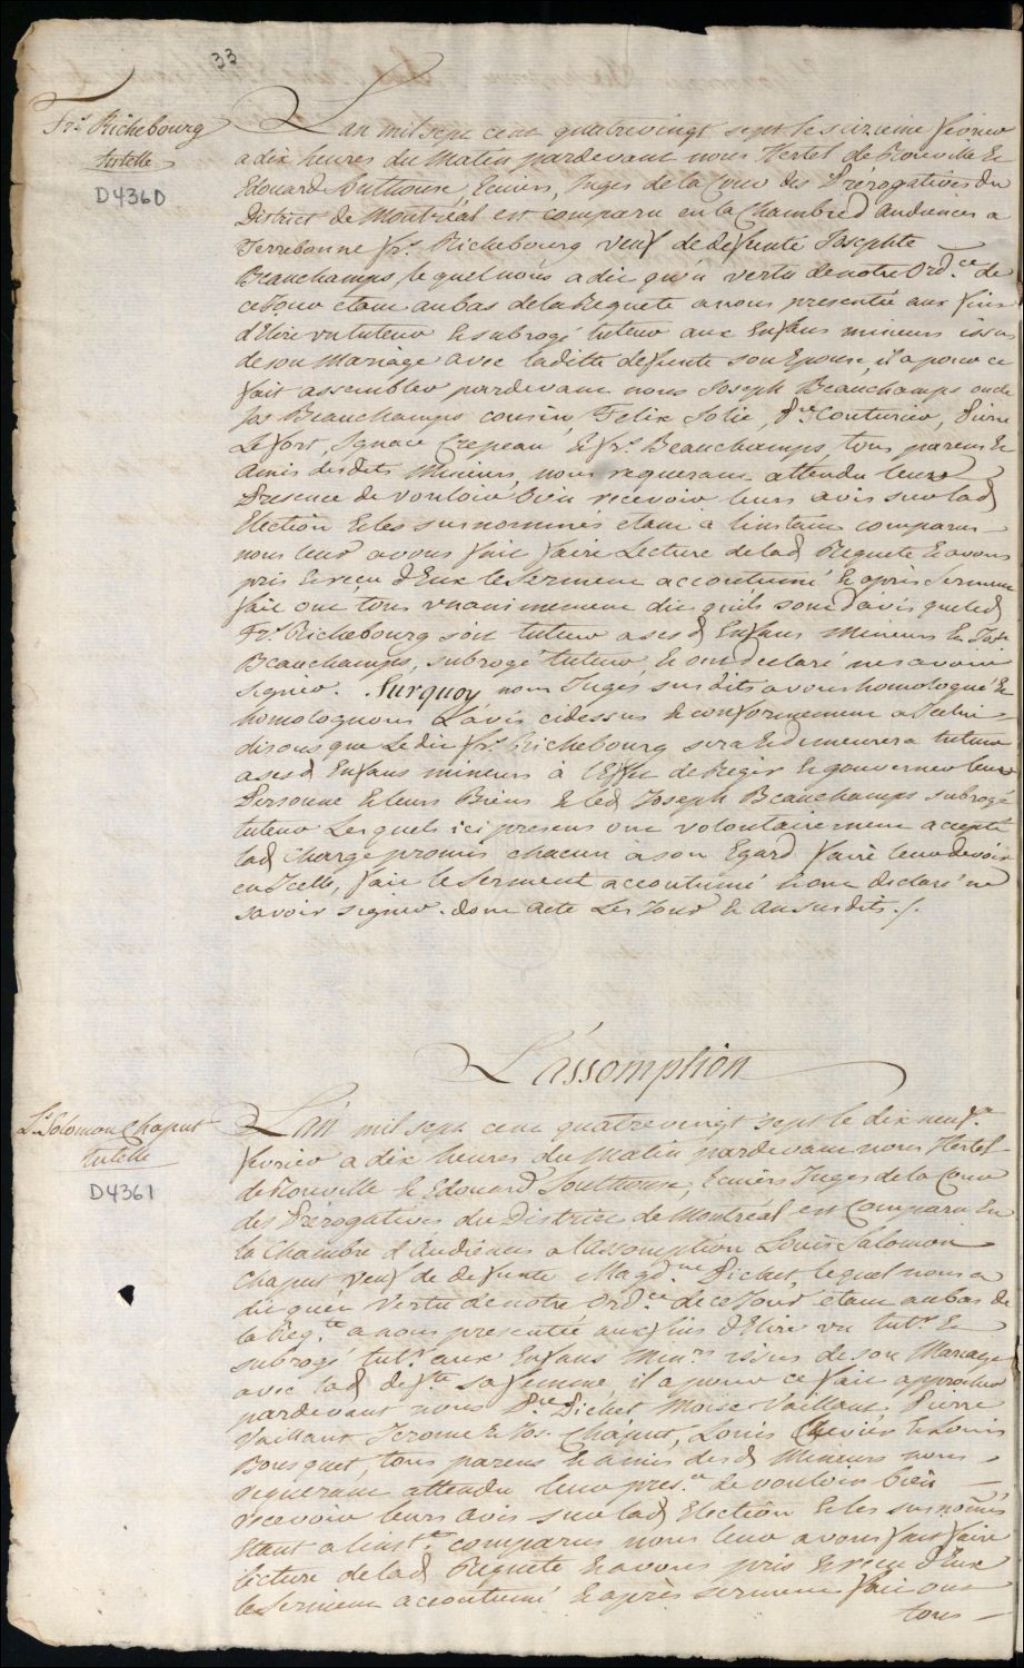 33
Frs. Richebourg
tutelle
D4360
Lan mil sept cent quatrevingt sept le seizieme fevrier
a dix heures du Matin pardevant nous Hertel de Rouville &
Edouard Southouse, Ecuiers, Juges de la Cour des Prérogatives du
District de Montréal est comparu en la Chambre d'Audiences a
Terrebonne frs. Richebourg veuf de defunte Josephte
Beauchamps, lequel nous a dit qu'en vertu de notre Ord.ce de
ce Jour etant au bas de la Requete a nous presentée aux fins
d'Elire un tuteur & subrogé tuteur aux Enfans mineurs issus
de son Mariage avec laditte defunte son Epouse, il a pour ce
fait assembler pardevant nous Joseph Beauchamps oncle
Jos Beauchamps cousin, Felix Jolie, Pre. Couturier, Pierre
Lefort, Ignace Crepeau & frs. Beauchamps, tous parens &
Amis desdits Mineurs, nous requerant attendu leur
Presence de vouloir bien recevoir leurs avis sur lad
Election & les susnommés etant à linstant comparus
nous leur avons fait faire Lecture de lad Requete & avons
pris & reçu d'Eux le Serment accoutumé & après Serment
fait ont tous unanimement dit quils sont d'avis queled
Frs. Richebourg soit tuteur a sesd Enfans Mineurs & Jos.
Beauchamps, subrogé tuteur & ont declaré ne savoir
signer. Surquoy nous Juges susdits avons homologué &
homologuons L'avis cidessus & conformement a Icelui
disons que Ledit frs. Richebourg sera & demeurera tuteur
a sesd Enfans mineurs à l'Effet de Regir & gouverner leurs
Personne & leurs Biens & led Joseph Beauchamps subrogé
tuteur Lesquels ici presens ont volontairement accepté
lad Charge promis chacun à son Egard faire leur devoir
en Icelle, fait le Serment accoutumé & ont declaré ne
savoir signer. dont acte Les Jour & An susdits./.
L'assomption
Ls. Solomon Chaput
tutelle
D4361
Lan mil sept cent quatrevingt sept le dix neuf.e
fevrier a dix heures du Matin pardevant nous Hertel
de Rouville & Edouard Southouse, Ecuiers Juges de la Cour
des Prérogatives du District de Montréal est Comparu En
la Chambre d'Audiences a l'Assomption Louis Salomon
Chaput veuf de defunte Magd.ne Pichet, lequel nous a
dit quen Vertu de notre Ord.ce de ce Jour etant au bas de
la Req.te a nous presentée aux fins d'Elire un tut.r &
subrogé tut.r aux Enfans Min.rs issus de son Mariage
avec lad def.te sa femme, il a pour ce fait approcher
pardevant nous Pre Pichet Moise Vaillant, Pierre
Vaillant Jerome & Jos. Chaput, Louis & Louis
Bousquet, tous parens & amis desd Mineurs nous
requerant attendu leur pres.ce de vouloir bien
recevoir leurs Avis sur lad Election & les susnomés
Etant a linst.t comparus nous leur avons fait faire
lecture de lad Requete & avons pris & reçu d'Eux
le Serment accoutumé & après serment fait ont
tous